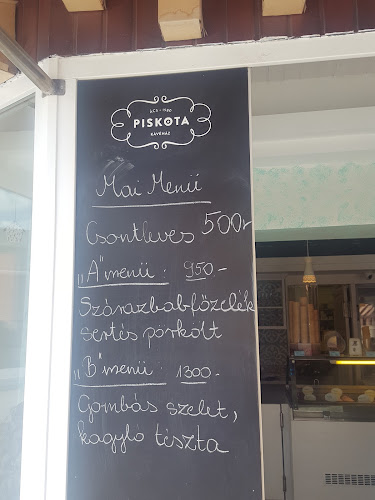 PISKÓTA
KÁVÉHÁZ
Mai Menü
Csontleves 500,-
„A" menü: 950,-
Szárazbabfőzelék
sertés pörkölt
„B" menü: 1300,-
Gombás szelet,
kagyló tészta